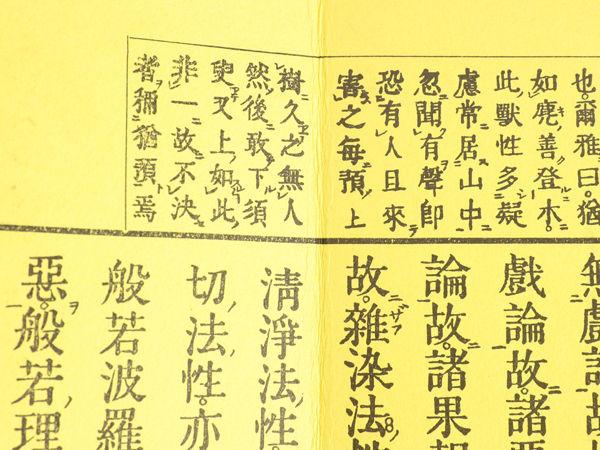 也。爾雅曰。猶
如麂善登木。
此獸性多疑
慮常居山中
忽聞有聲即
恐有人且來
害之毎預上
樹久之無人
然後敢下須
臾又上如此
非一故不決
者穪猶預焉
無戲論故
戲論故。諸
論故。諸果
故。雜染法
清淨法性。
切法性。亦
般若波羅
惡。般若理